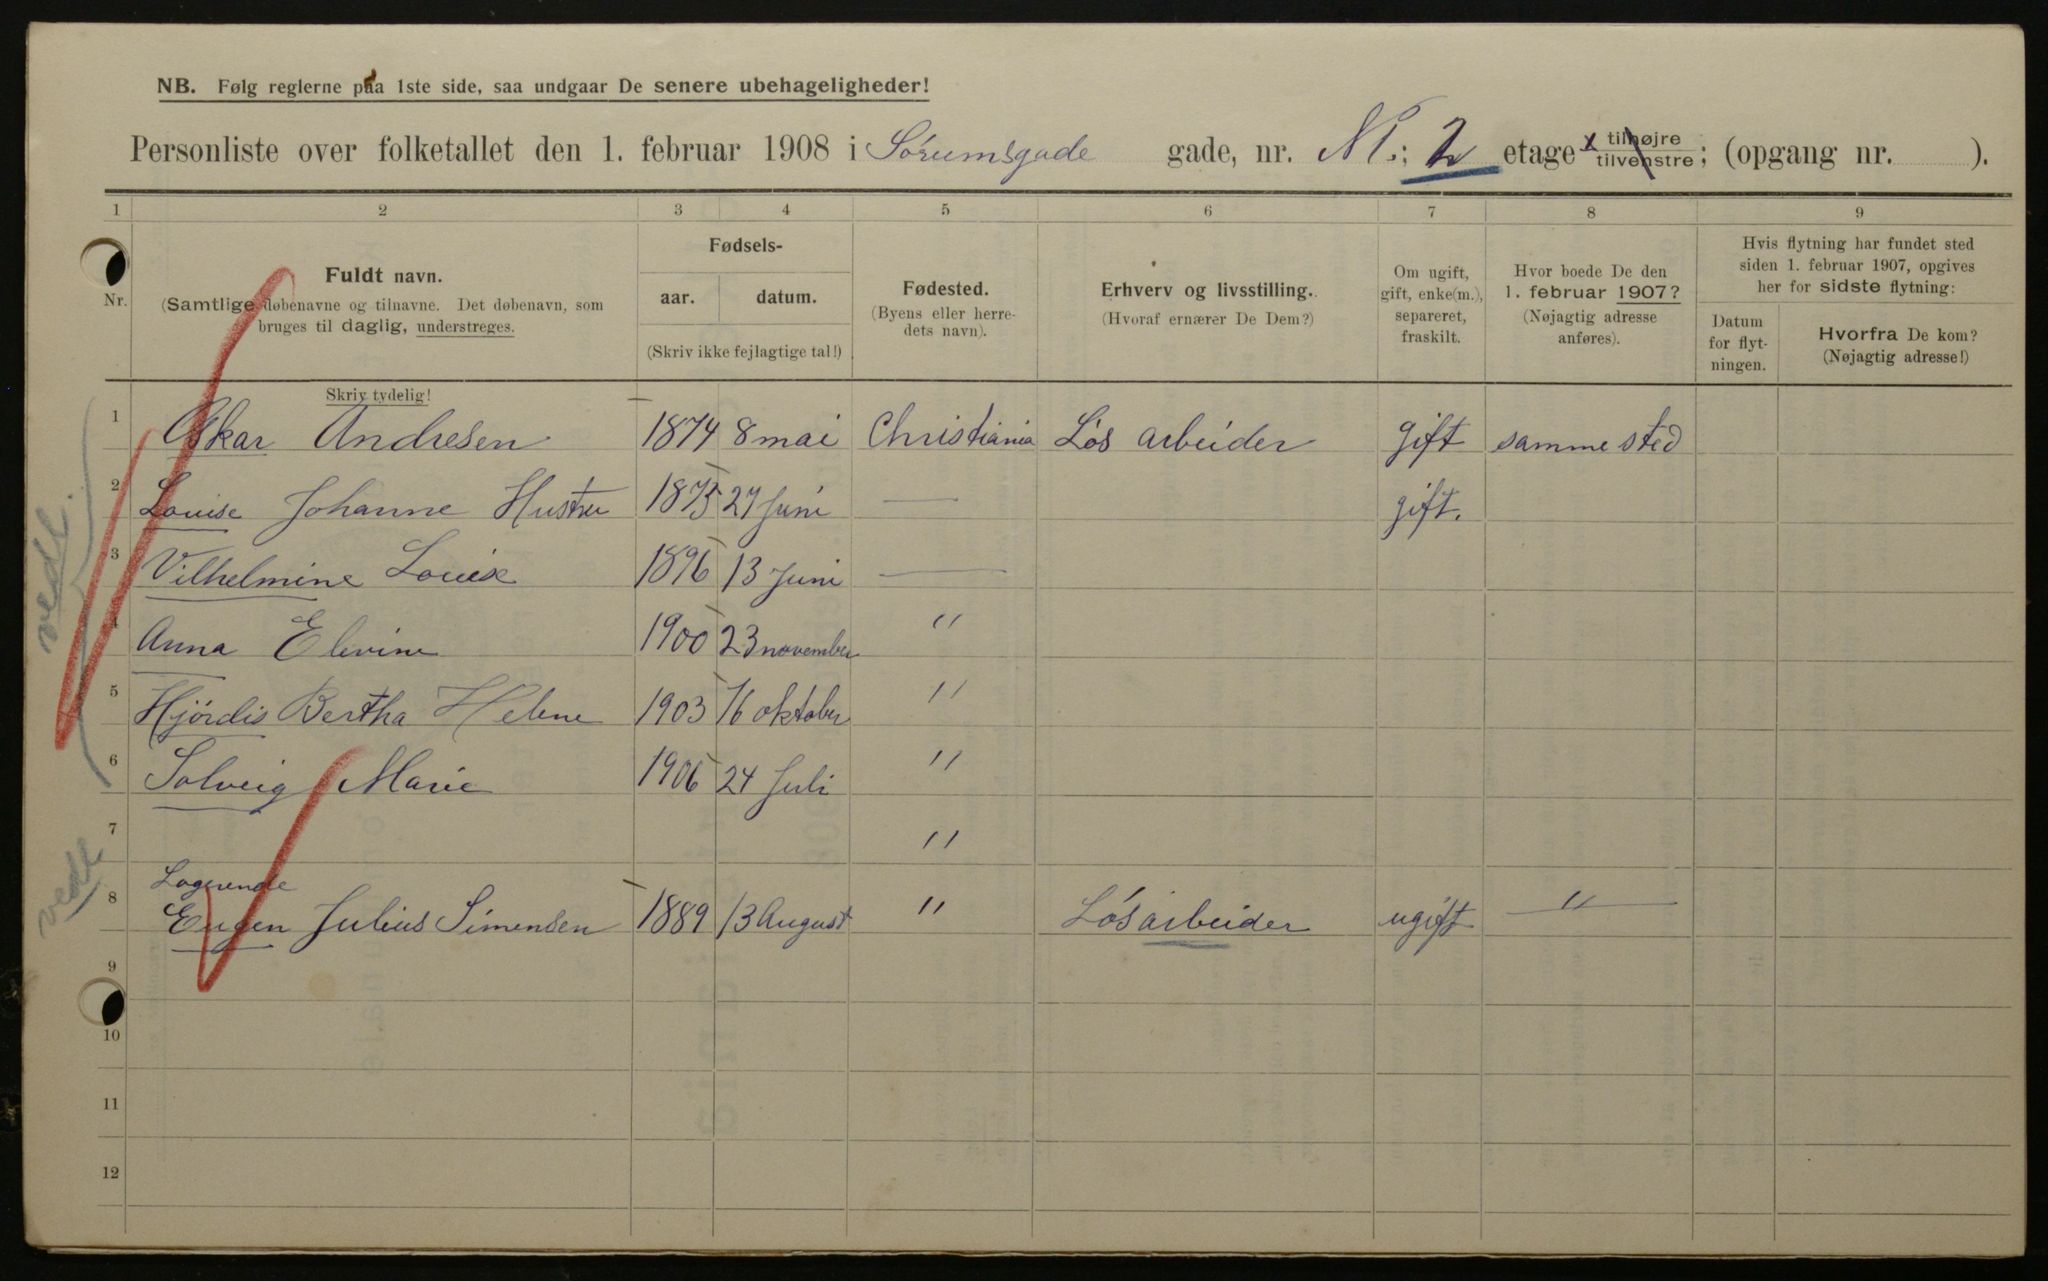 NB. Følg reglerne paa 1ste side, saa undgaar De senere ubehageligheder!
Personliste over folketallet den 1. februar 1908 i Sörumsgade gade, nr. ; 2 etage x tilhøjre tilvenstre; (opgang nr. ).
1 2 3 4 5 6 7 8 9
Nr.
Fuldt navn.
(Samtlige døbenavne og tilnavne. Det døbenavn, som
bruges til daglig, understreges.
Skriv tydelig!
Fødsels-
aar. datum.
(Skriv ikke fejlagtige tal!)
Fødested.
(Byens eller herre-
dets navn).
Erhverv og livsstilling.
(Hvoraf ernærer De Dem?)
Om ugift,
gift, enke(m.),
separeret,
fraskilt.
Hvor boede De den
1. februar 1907?
(Nøjagtig adresse
anføres).
Hvis flytning har fundet sted
siden 1. februar 1907, opgives
her for sidste flytning:
Datum
for flyt-
ningen.
Hvorfra De kom?
(Nøjagtig adresse!)
1 Oskar Andresen 1874 8 mai Christiania Lös arbeider gift samme sted
2 Louise Johanne Hustru 1875 27 Juni — gift.
3 Vilhelmine Louise 1896 13 Juni —
4 Anna Elevine 1900 23 november "
5 Hjördis Bertha Helene 1903 16 oktober "
6 Solveig Marie 1906 24 Juli "
7 "
Logerende
8 Eugen Julius Simensen 1889 13 August " Lösarbeider ugift — " —
9
10
11
12
vedl.
vedl